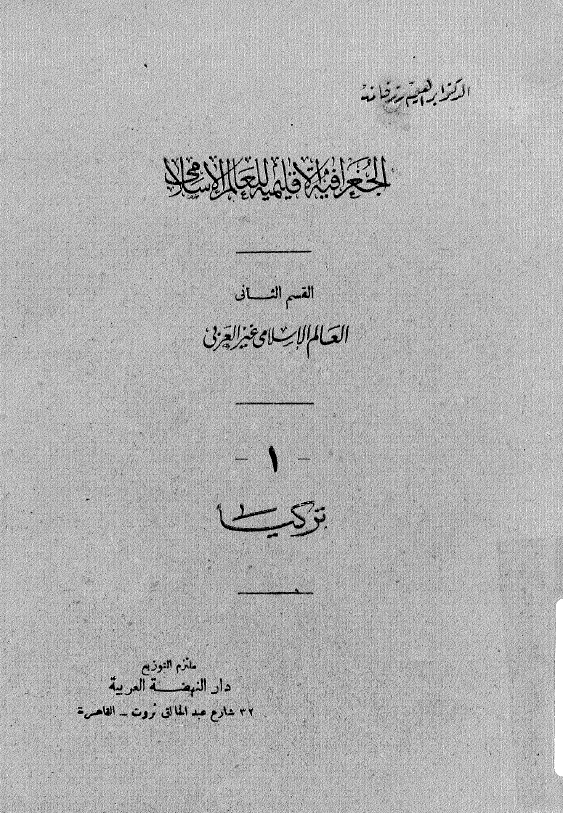 الدكتور ابراهيم رزقانه
الجغرافية الاقليمية للعالم الاسلامى
القسم الثانى
العالم الاسلامى غير العربى
- ١ -
تركيا
ملتزم التوزيع
دار النهضة العربية
٣٢ شارع عبد الخالق ثروت – القاهرة